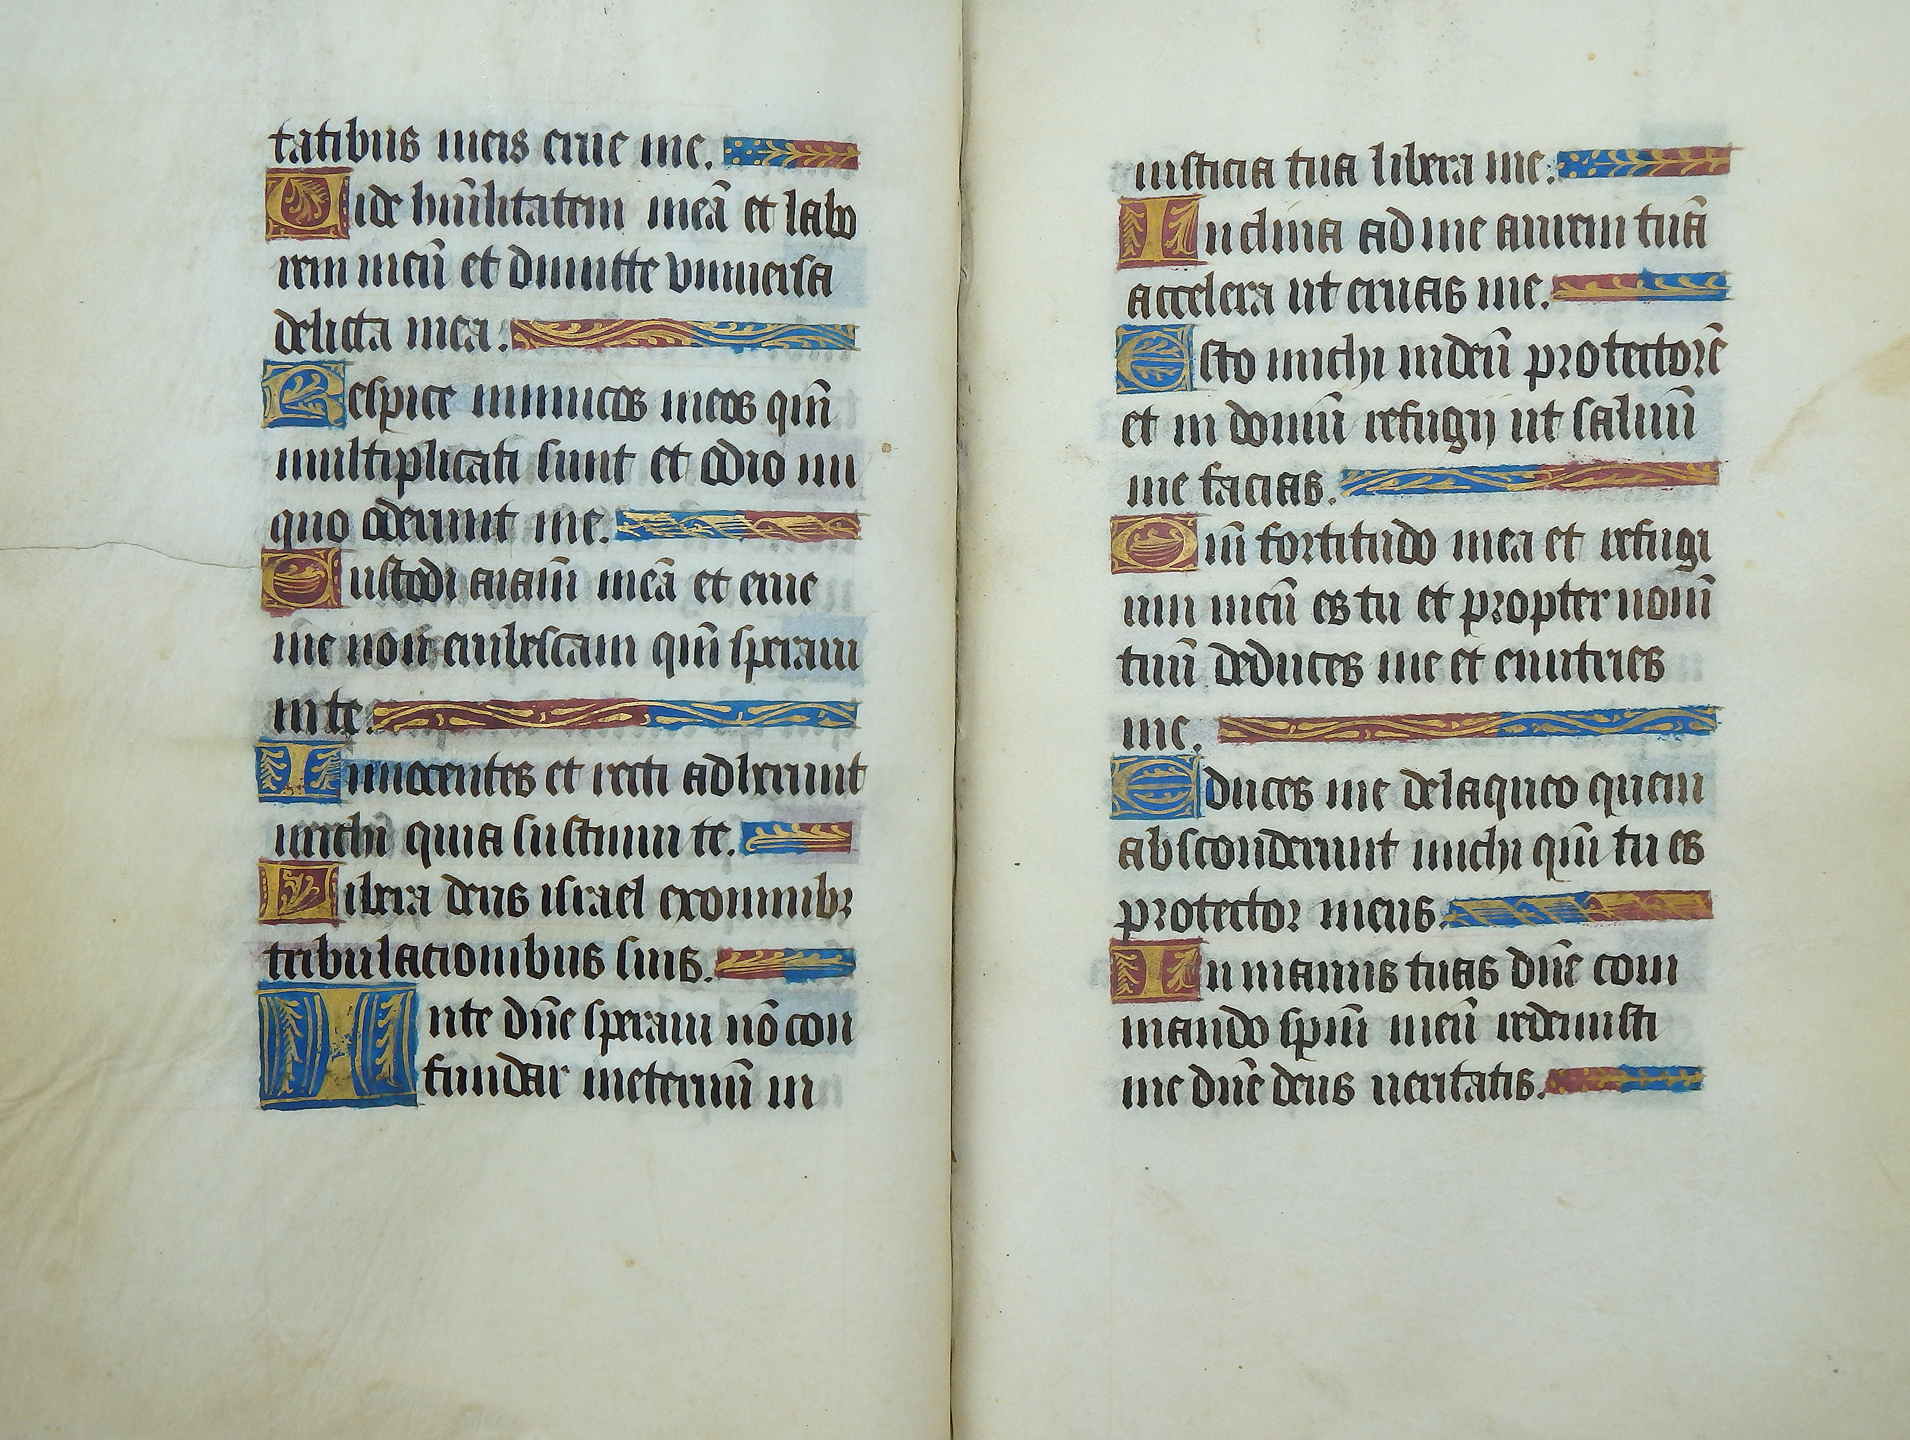 tatibus meis erue me.
Vide hūilitatem meā et labo
rem meū et dimitte vniuersa
delicta mea.
Respice inimicos meos qm̄
multiplicati sunt et odio ini
quo oderunt me.
Custodi aiam̄ meā et erue
me non erubescam qm̄ speraui
in te.
Innocentes et recti adheserunt
michi quia sustinui te.
Libera deus israel ex omnibꝫ
tribulacionibus suis.
In te dn̄e speraui nō con
fundar in eternū in
iusticia tua libera me.
Inclina ad me aurem tuā
accelera ut eruas me.
Esto michi in deū protectorē
et in domū refugij ut saluū
me facias.
Qm̄ fortitudo mea et refugi
um meū es tu et propter nom̄
tuū deduces me et enutries
me.
Educes me de laqueo quem
absconderunt michi qm̄ tu es
protector meus.
In manus tuas dn̄e com
mando spm̄ meū redemisti
me dn̄e deus ueritatis.